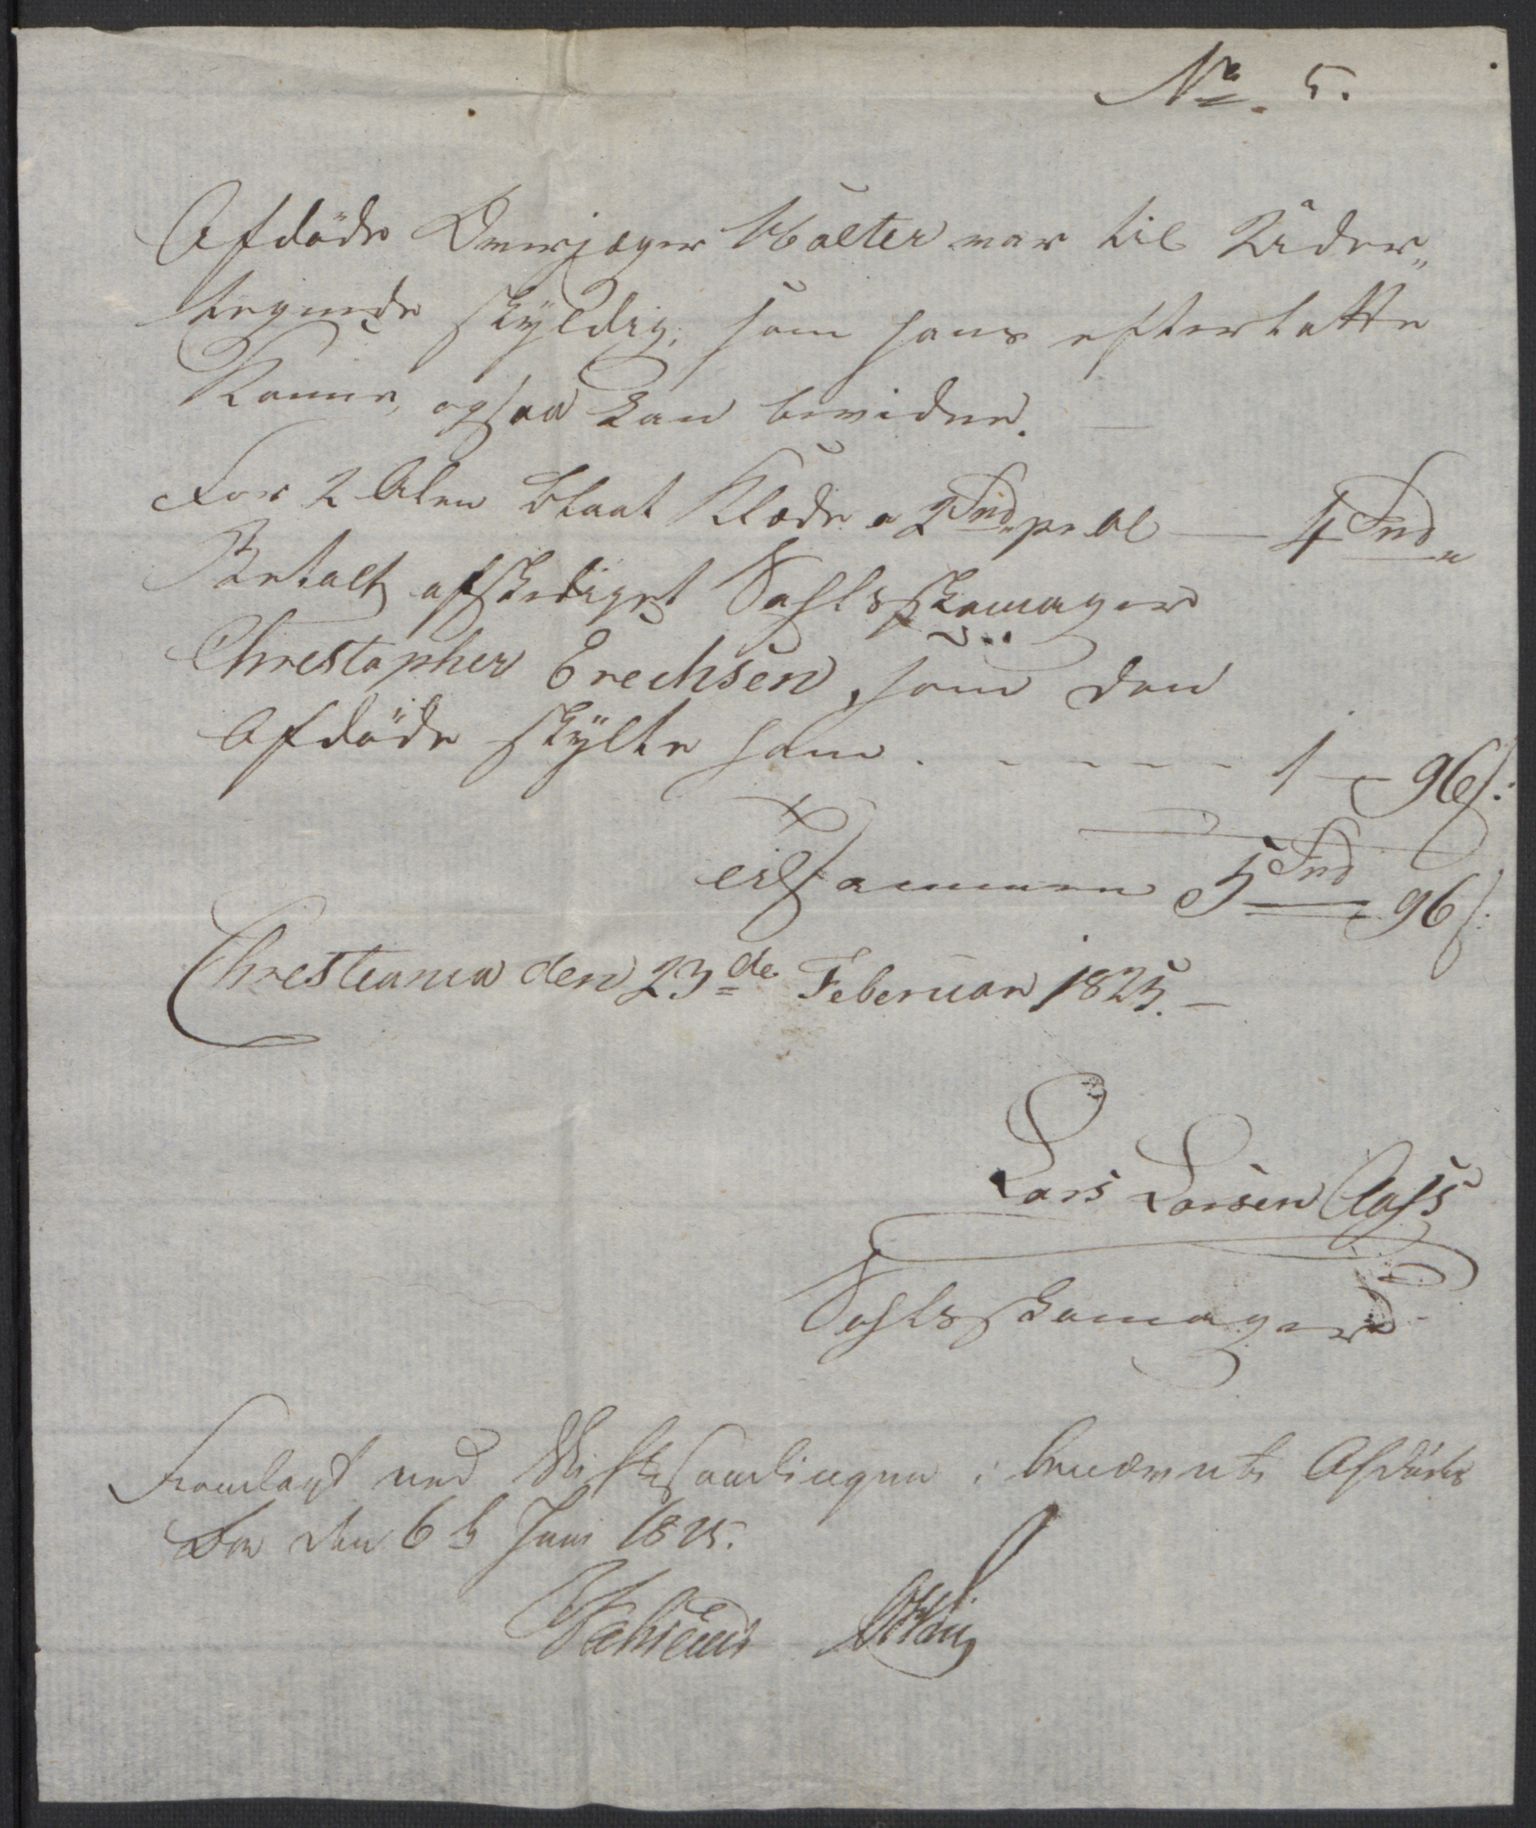 No. 5.
Afdöde Overjæger Walter var til Under„
tegnede skÿldig, som hans efterlatte
Konne, ogsaa kan bevidne. —
For 2 Alen blaat Klæde a 2 Spd. pr Al — 4 Spd.
Betalt afskediget Vahlsskomager
Christopher Erechsen, som den
Afdöde skÿlte ham . - - - - - 1 — 96 s:
tilsammen 5 Spd 96 s:
Christiania den 23de Februar 1825. —
Lars Larsen Aass
Vahlsskomager
Fremlagt ved Skiftesamlingen i benævnte Afdødes
Bo den 6te Juni 1825.